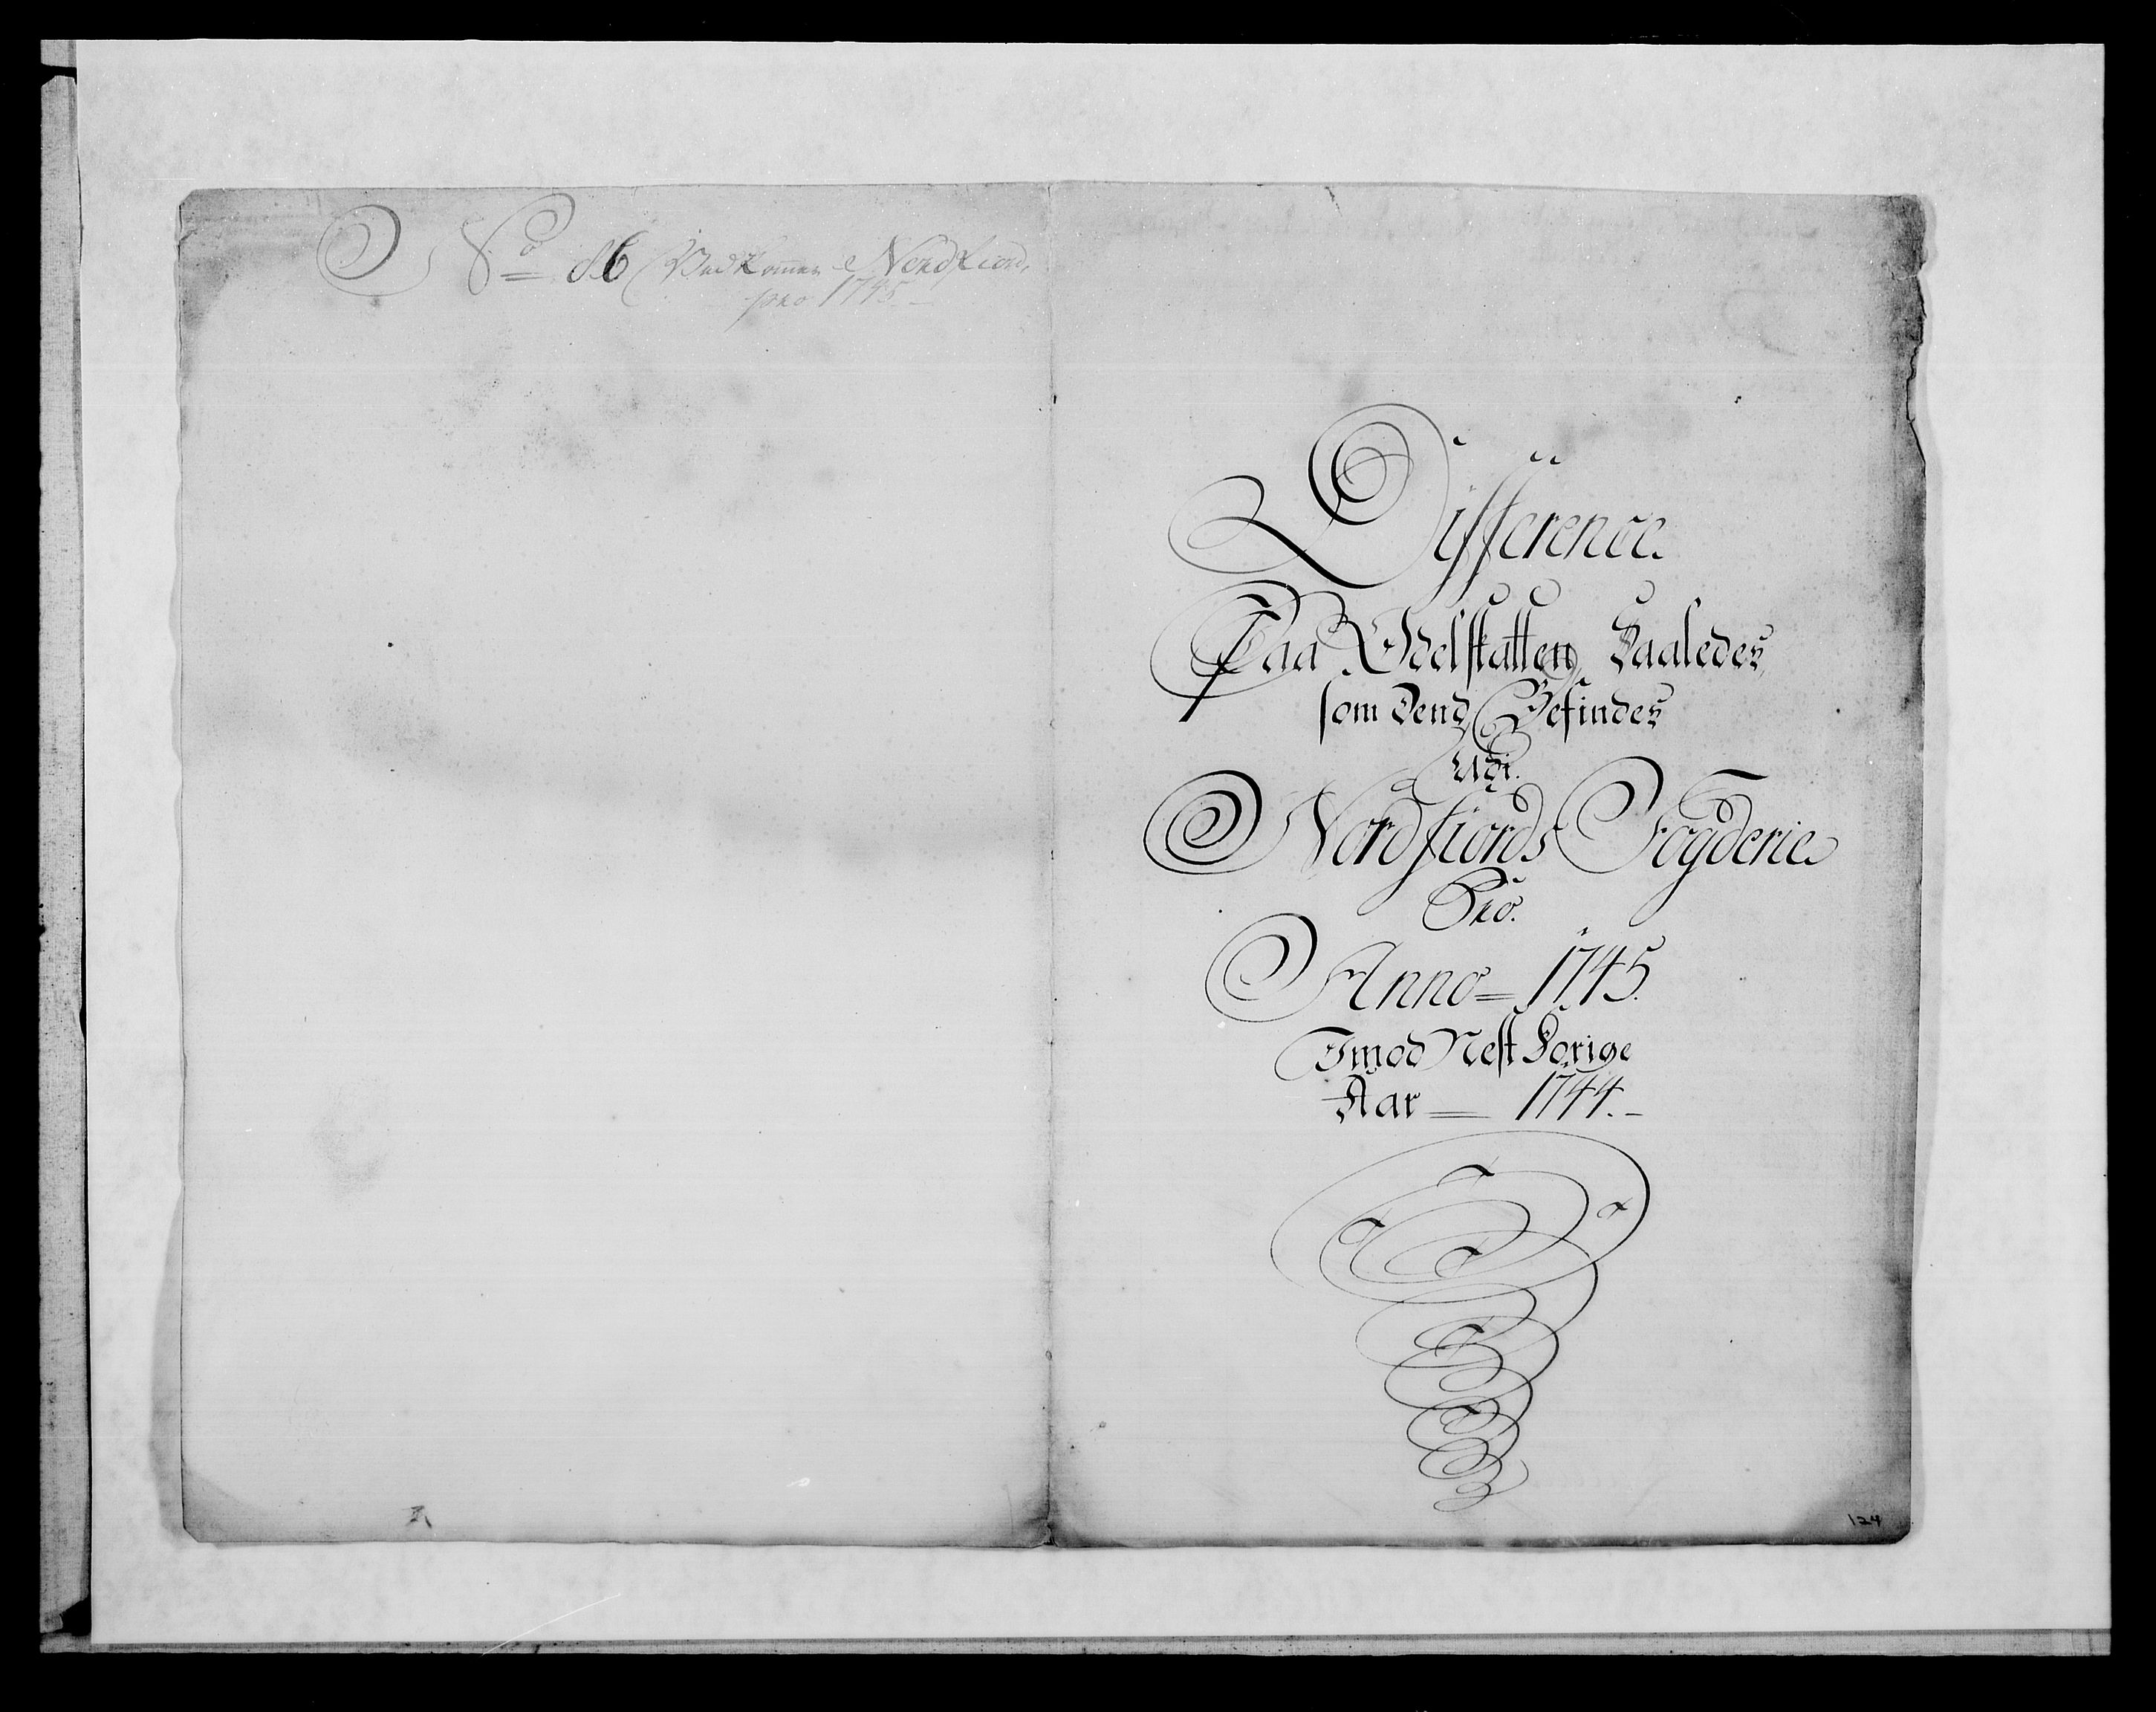 No 86 Vedkommende Nordfiord,
pro 1745.
Difference.
Paa Odelskatten Saaledes,
som Dend Befindes
Udi.
Nordfiords Fogderie
Pro.
Anno = 1745.
Imod Nest Forige
Aar = 1744.
124